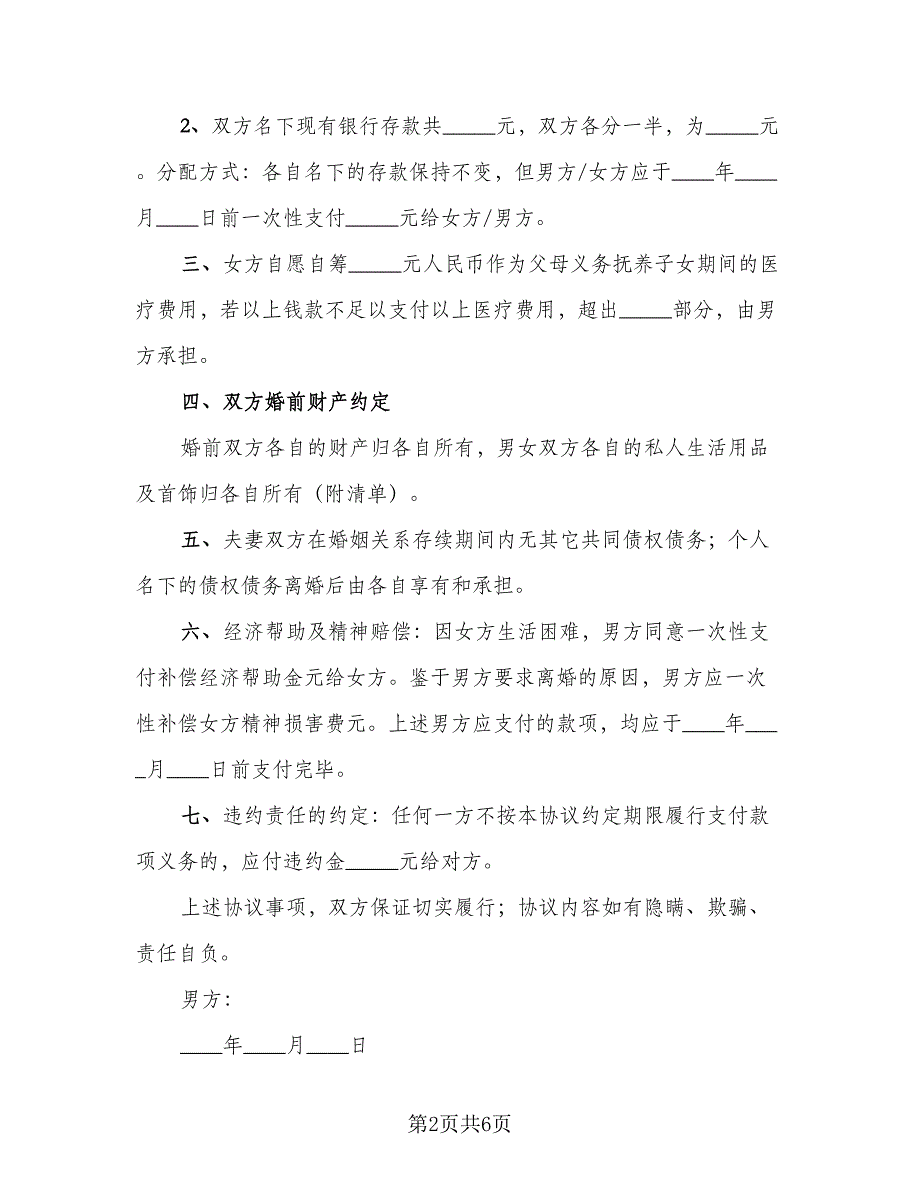 2、双方名下现有银行存款共_____元，双方各分一半，为_____元
。分配方式：各自名下的存款保持不变，但男方/女方应于____年____
月____日前一次性支付_____元给女方/男方。
三、女方自愿自筹_____元人民币作为父母义务抚养子女期间的医
疗费用，若以上钱款不足以支付以上医疗费用，超出_____部分，由男
方承担。
四、双方婚前财产约定
婚前双方各自的财产归各自所有，男女双方各自的私人生活用品
及首饰归各自所有（附清单）。
五、夫妻双方在婚姻关系存续期间内无其它共同债权债务；个人
名下的债权债务离婚后由各自享有和承担。
六、经济帮助及精神赔偿：因女方生活困难，男方同意一次性支
付补偿经济帮助金元给女方。鉴于男方要求离婚的原因，男方应一次
性补偿女方精神损害费元。上述男方应支付的款项，均应于____年___
_月____日前支付完毕。
七、违约责任的约定：任何一方不按本协议约定期限履行支付款
项义务的，应付违约金_____元给对方。
上述协议事项，双方保证切实履行；协议内容如有隐瞒、欺骗、
责任自负。
男方：
____年____月____日
第2页共6页